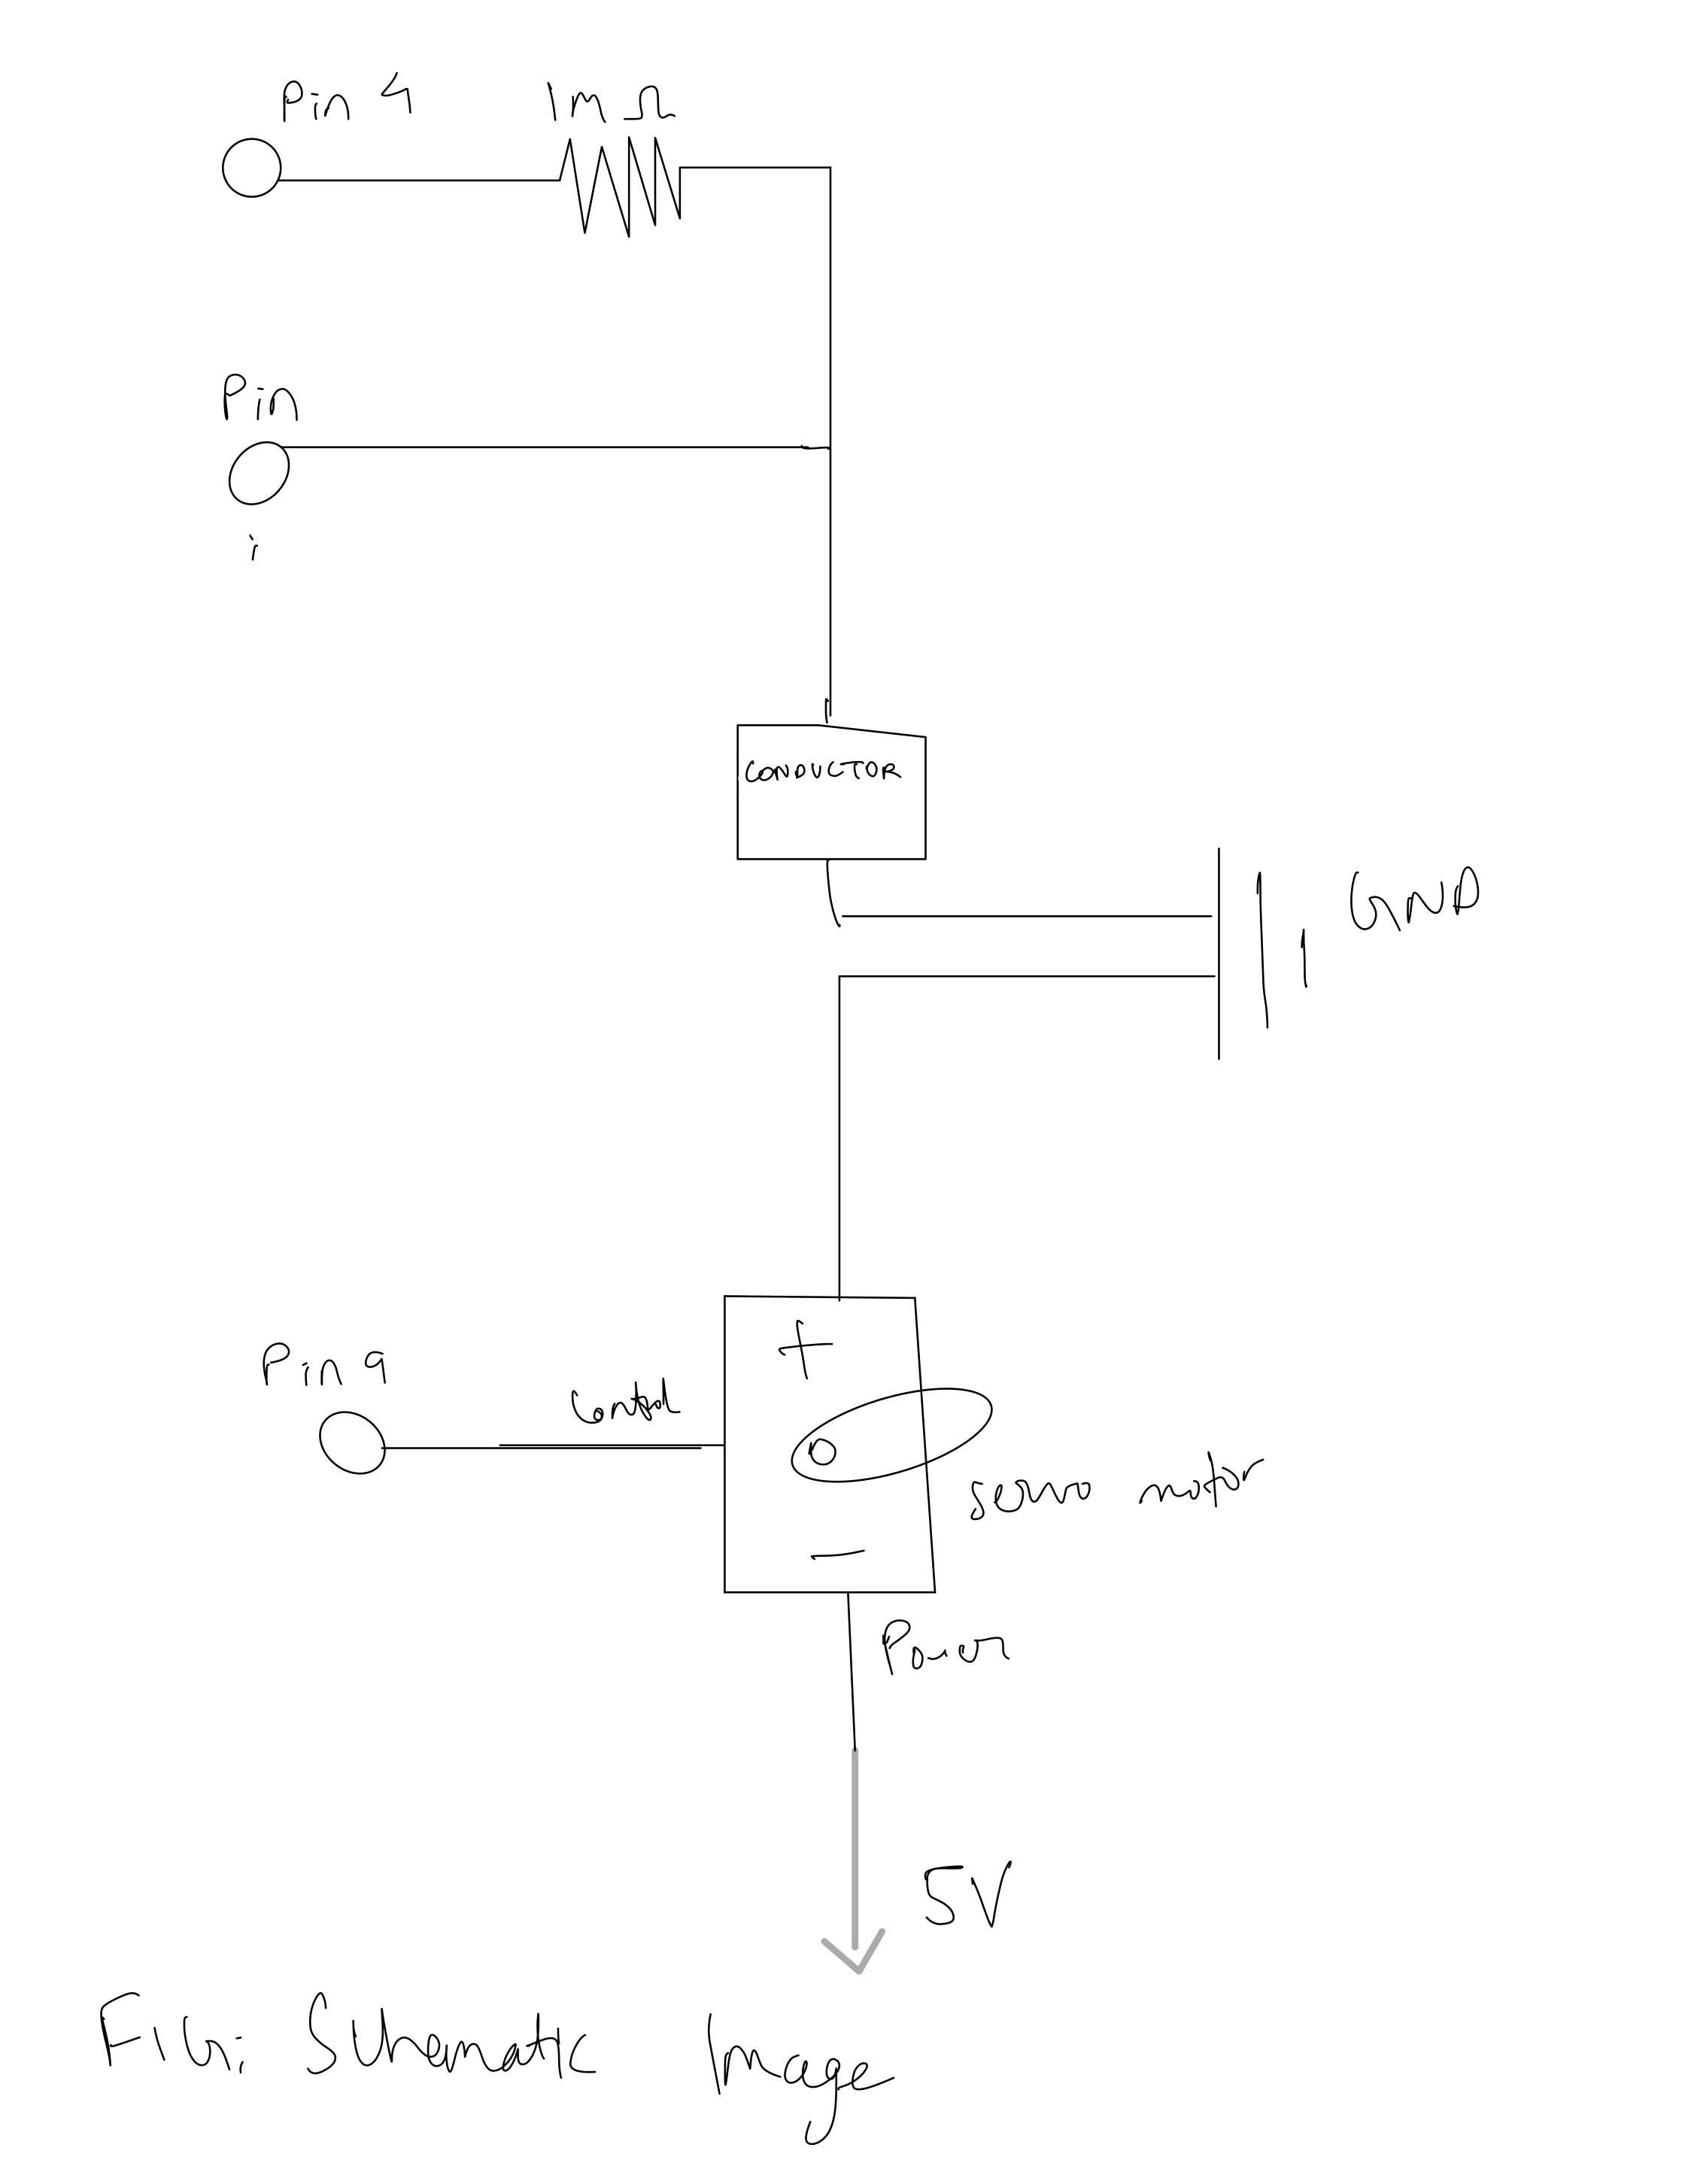 Pin 4
1M Ω
Pin
CONDUCTOR
GND
Pin 9
Control
+
servo motor
−
Power
5V
FIG: Schematic Image